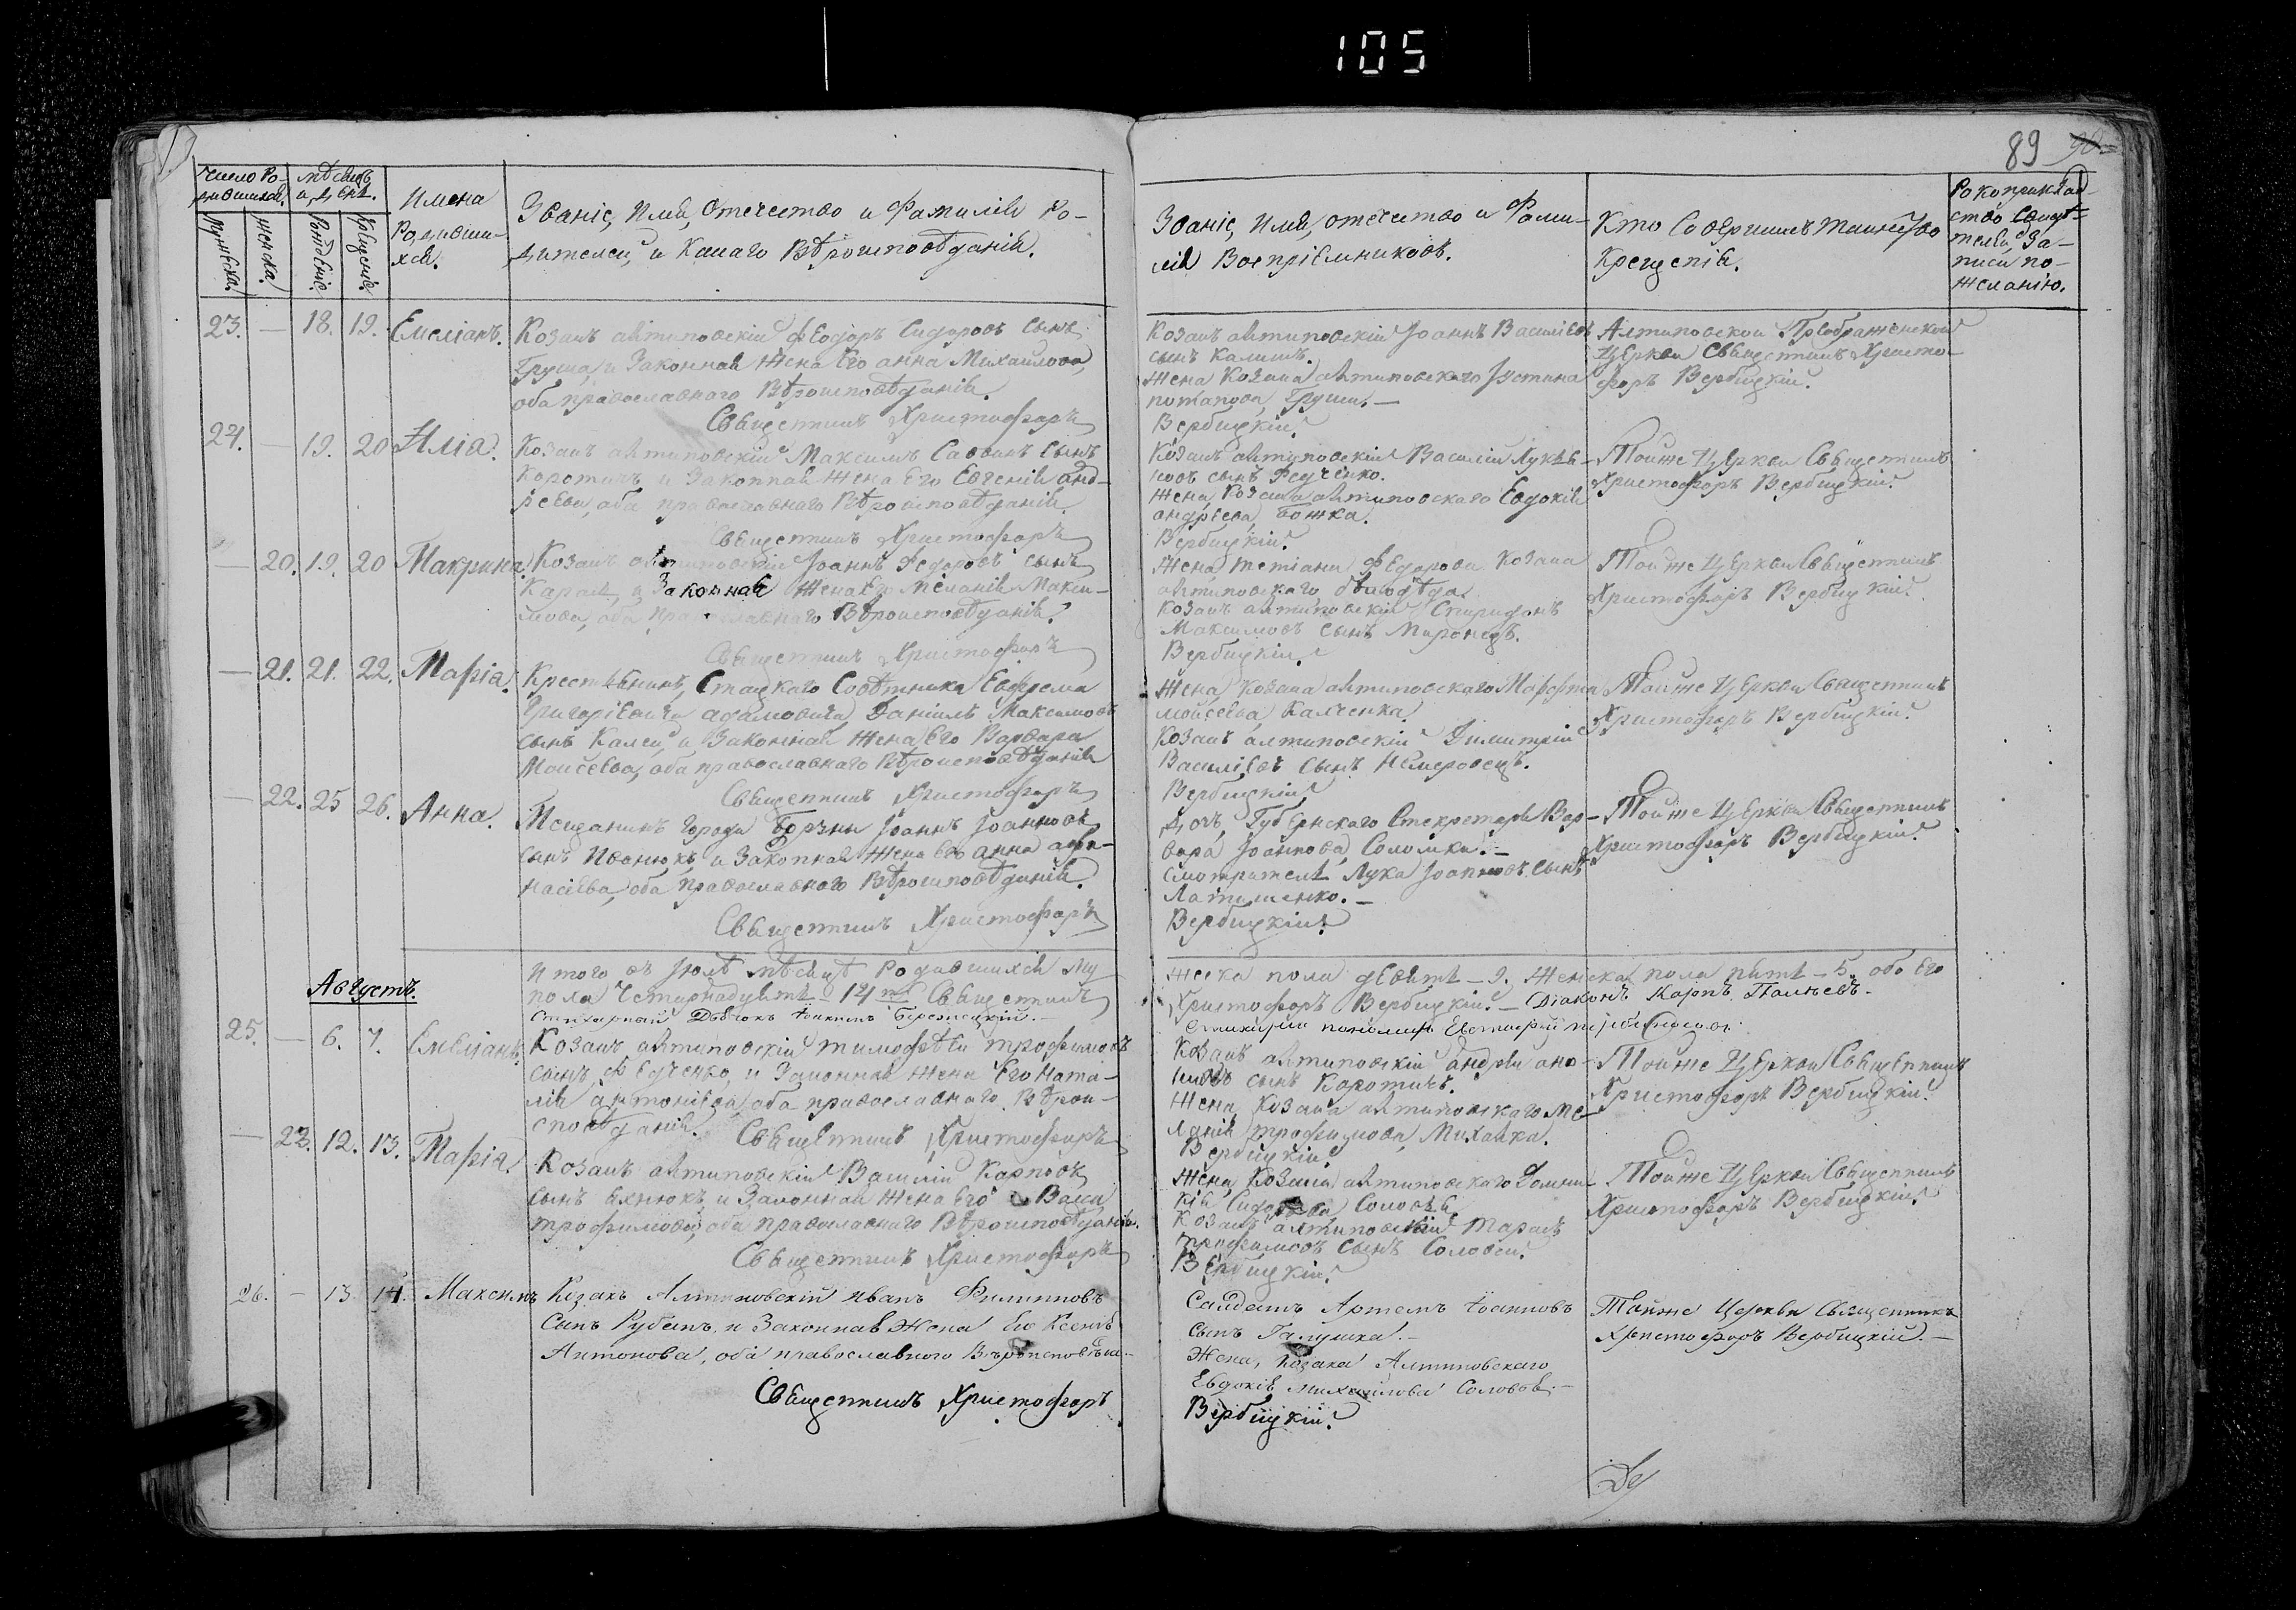 105
89
Число Ро-
дившихся.
Мужеска.
женска.
мѣсяцъ
и день.
Рожденіе.
Крещеніе.
Имена
Родивши-
хся.
Званіе, Имя, Отечество и Фамилія Ро-
дителей, и Какого Вѣроисповѣданія.
Званіе, Имя, отечество и Фами-
лія Воспріемниковъ.
Кто Совершилъ таинство
Крещенія.
Рукоприклад-
ство Свидѣ-
телей За-
писи по-
желанію.
23. — 18. 19. Емеліанъ.
Козакъ алтиповскій Феодоръ Сидоровъ Сынъ
Груша, и Законная жена Его анна Михайлова,
оба православнаго Вѣроисповѣданія.
Священникъ Христофоръ
Козакъ алтиповскій Іоаннъ Василіевъ
сынъ Калишъ.
жена Козака алтиповскаго Іустина
потапова, Груши. —
Вербицкій.
Алтиповской Преображенской
Церкви Священникъ Христо-
форъ Вербицкій.
24. — 19. 20 Илія.
Козакъ алтиповскій Максимъ Саввинъ Сынъ
Коротичъ и Законная жена Его Евгенія анд-
реева, оба православнаго Вѣроисповѣданія.
Священникъ Христофоръ
Козакъ алтиповскій Василій Лукья-
новъ сынъ Федченко.
жена, Козака алтиповскаго Евдокія
андреева, Божка.
Вербицкій.
Тойже Церкви Священникъ
Христофоръ Вербицкій.
— 20. 19. 20 Макрина.
Козакъ алтиповскій Іоаннъ Федоровъ сынъ
и Законная жена Его Меланія Макси-
мова, оба православнаго Вѣроисповѣданія.
Священникъ Христофоръ
жена, тетіана Федорова Козака
алтиповскаго
Козакъ алтиповскій Спиридонъ
Максимовъ сынъ Миронецъ.
Вербицкій.
Тойже Церкви Священникъ
Христофоръ Вербицкій.
— 21. 21. 22. Марія.
Крестьянинъ, Стацкаго Совѣтника Евфрема
Григоріевича адамовича, Даніилъ Максимовъ
сынъ Калей, и Законная жена Его Варвара
Моисеева, оба православнаго Вѣроисповѣданія
Священникъ Христофоръ
жена, Козака алтиповскаго Марфа
моисеева, Калченка.
Козакъ алтиповскій Димитрій
Василіевъ сынъ Немеровецъ.
Вербицкій
Тойже Церкви Священникъ
Христофоръ Вербицкій.
— 22. 25 26. Анна.
Мещанинъ города Борзны Іоаннъ Іоанновъ
сынъ Иванюкъ, и Законная жена Его анна афа-
насіева, оба православнаго Вѣроисповѣданія.
Священникъ Христофоръ
дочь, Губернскаго Секретаря Вар-
вара Іоаннова, Соломка. —
Смотритель Лука Іоанновъ Сынъ
Латышенко. —
Вербицкій.
Тойже Церкви Священникъ
Христофоръ Вербицкій.
Итого въ Іюлѣ мѣсяцѣ Родившихся му
жеска пола девять — 9. женска, пола пять — 5. обо Его
пола Четырнадцять — 14ть Священникъ
Христофоръ Вербицкій. — Діаконъ Карпъ
Стихарный Дьячокъ Іоакимъ Бережецкій. —
Августъ.
25. — 6. 7. Емеліанъ.
Козакъ алтиповскій тимофѣй трофимовъ
сынъ, Федченко, и Законная жена Его ната-
лія антоніева, оба православнаго Вѣрои-
сповѣданія. Священникъ Христофоръ
Козакъ алтиповскій андрей
сынъ Коротичъ.
жена, Козака алтиповскаго Ме-
ланія трофимова, Михайка.
Вербицкій.
Тойже Церкви Священникъ
Христофоръ Вербицкій.
— 23. 12. 13. Марія.
Козакъ алтиповскій Василій Карповъ
сынъ и Законная жена Его Васса
трофимова, оба православнаго Вѣроисповѣданія.
Священникъ Христофоръ
жена, Козака алтиповскаго Домни-
кія Соловья.
Козакъ алтиповскій Тарасъ
трофимовъ сынъ Соловей.
Вербицкій.
Тойже Церкви Священникъ
Христофоръ Вербицкій.
26. — 13. 14. Максимъ
Козакъ Алтиповскій Иванъ Филиповъ
Сынъ Рубанъ, и Законная Жена Его Ксенія
Антонова, оба православного Вѣроисповѣда. —
Священникъ Христофоръ
Салдатъ Артемъ Іоанновъ
Сынъ Галушка. —
Жена, Козака Алтиповскаго
Евдокія михайлова Соловья. —
Вербицкій.
Тойже Церкви Священникъ
Христофоръ Вербицкій. —